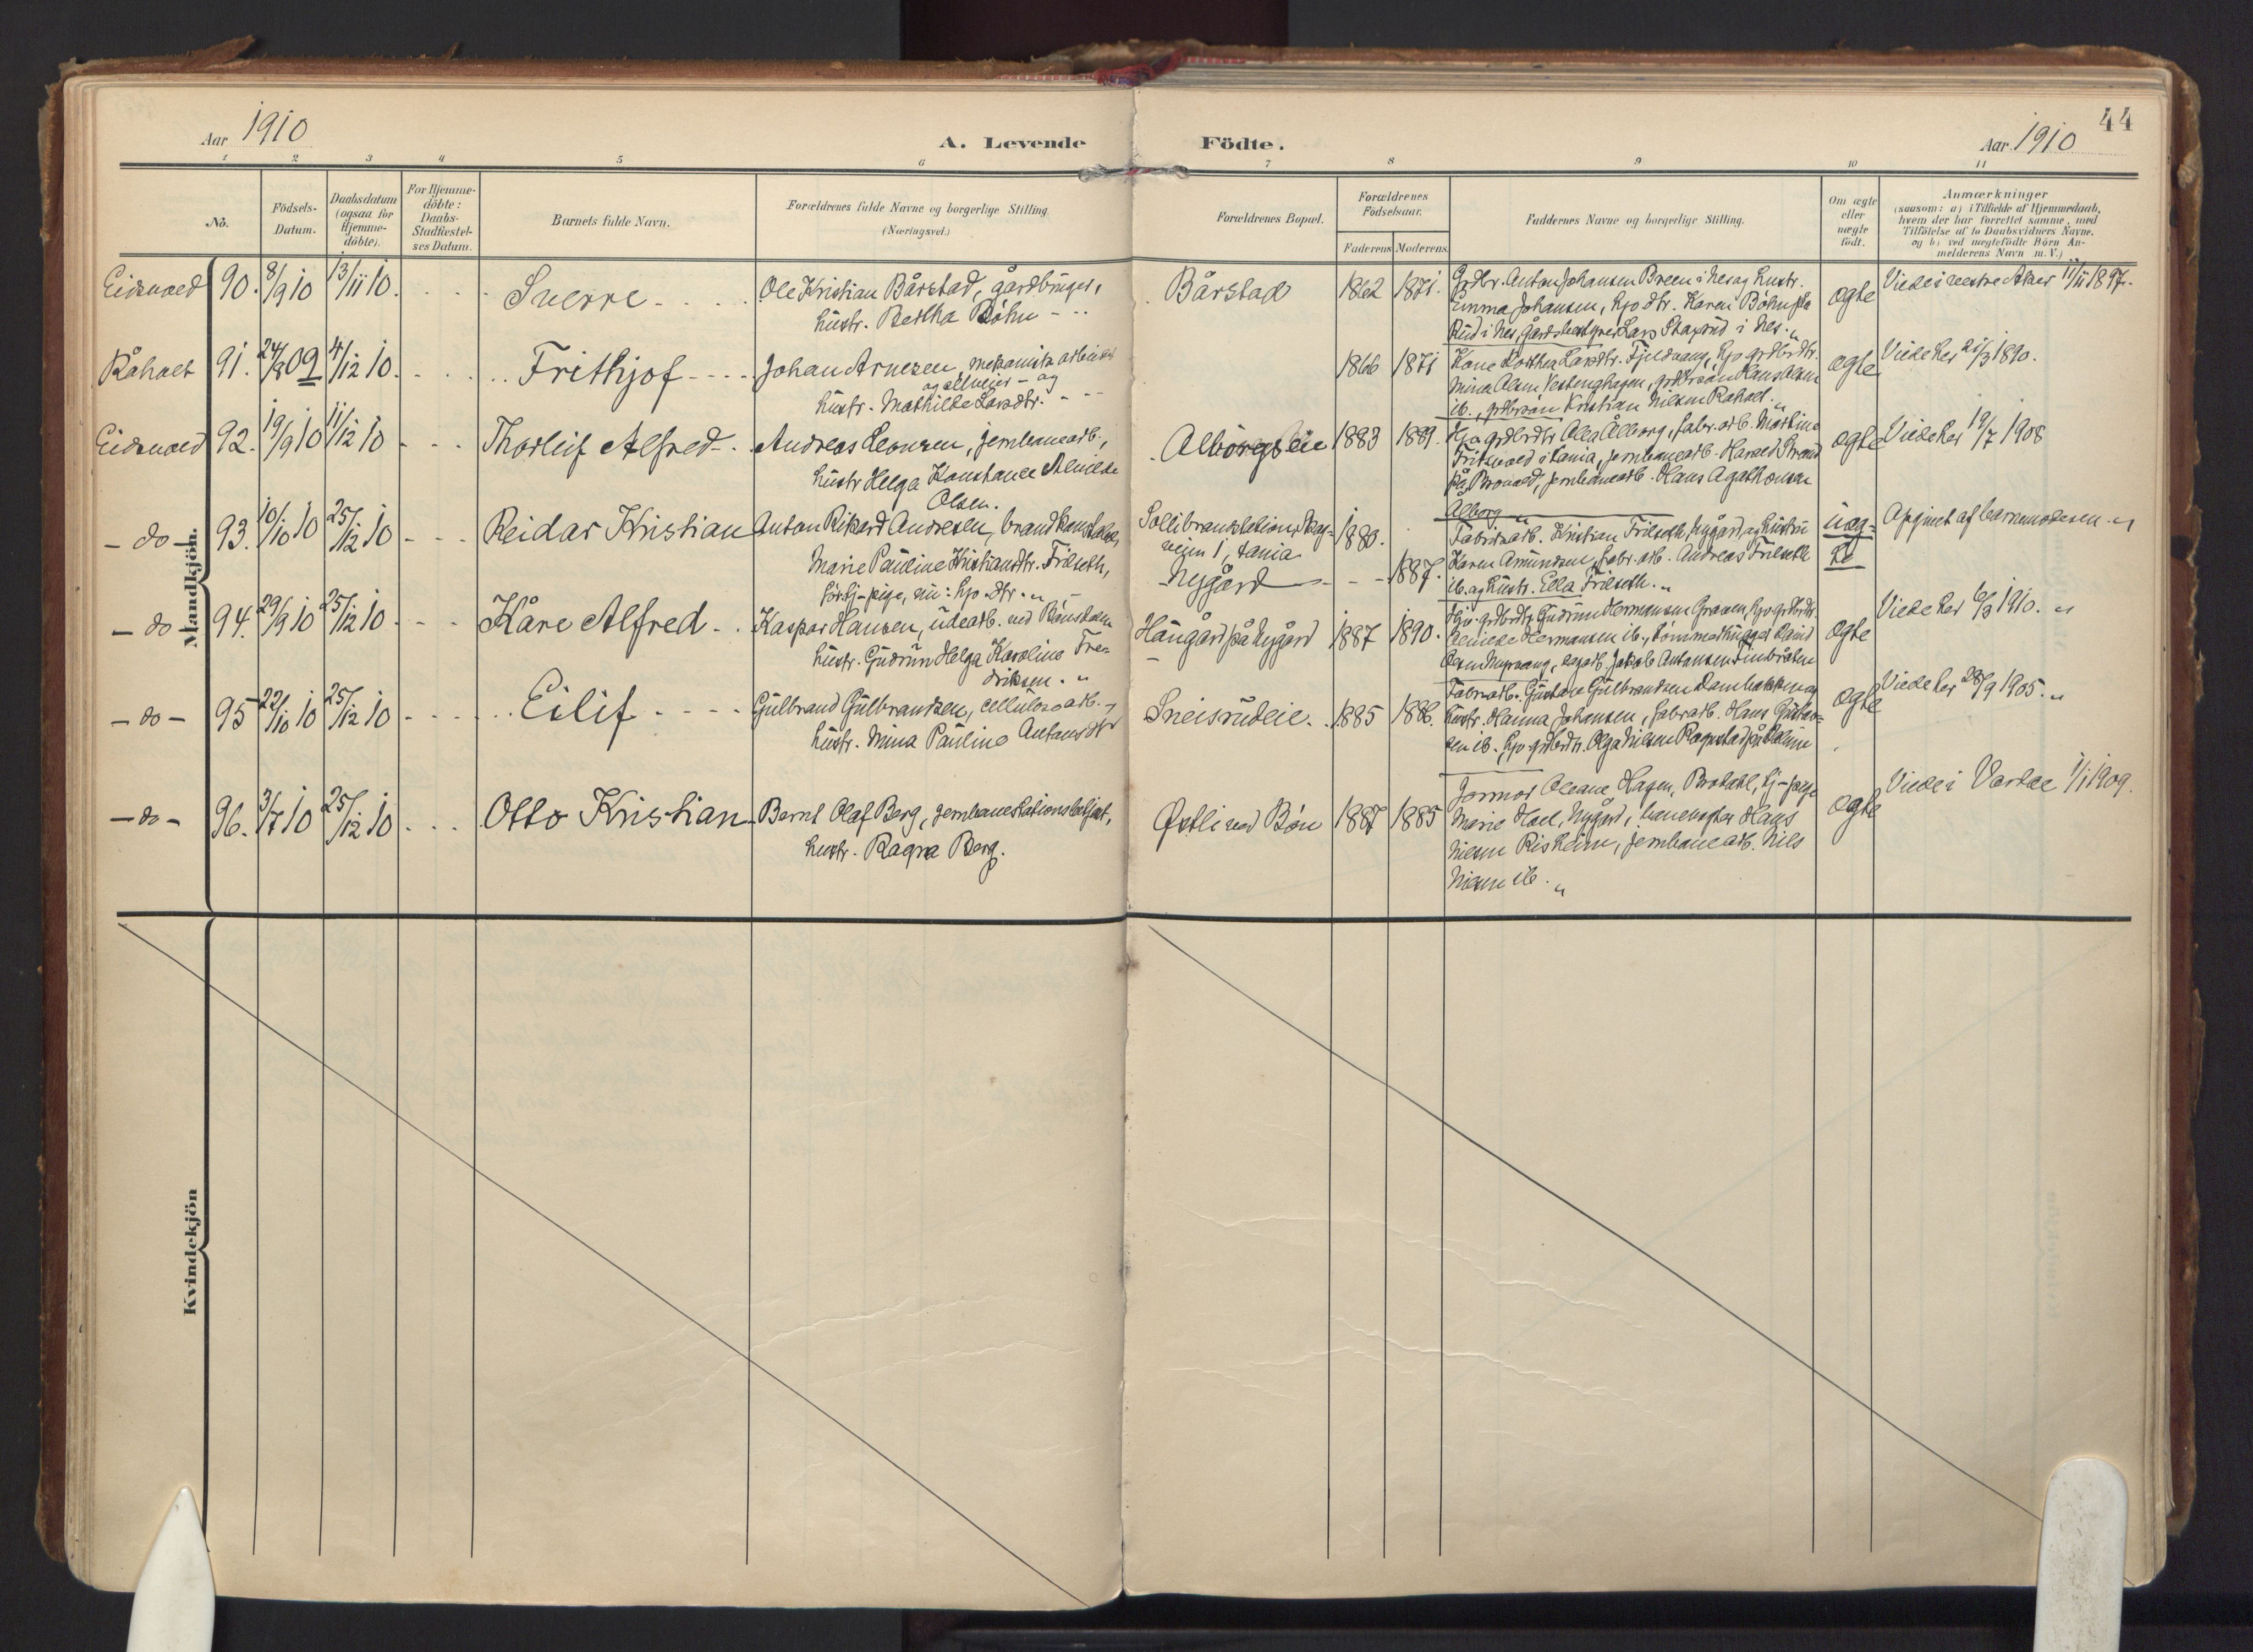 44
Aar 1910
A. Levende Födte.
Aar 1910
1 2 3 4 5 6 7 8 9 10 11
No.
Födsels-
Datum.
Daabsdatum
(ogsaa for
Hjemme-
döbte).
For Hjemme-
döbte:
Daabs-
Stadfæstel-
ses Datum.
Barnets fulde Navn.
Forældrenes fulde Navne og borgerlige Stilling
(Næringsvei.)
Forældrenes Bopæl.
Forældrenes
Födselsaar.
Faderens Moderens
Faddernes Navne og borgerlige Stilling.
Om ægte
eller
uægte
födt.
Anmærkninger
(saasom: a) i Tilfælde af Hjemmedaab,
hvem der har forrettet samme, med
Tilföielse af to Daabsvidners Navne,
og b) ved uægtefödte Börn An-
melderens Navn m. V.)
Mandkjön.
Eidsvold 90. 8/9 10 13/11 10.
Sverre
Ole Kristian Bårstad, gårdbruger,
hustr. Bertha Böhn
Bårstad 1862 1871.
Grdbr. Anton Johansen Breen i Nes og hustr.
Emma Johansen, hjv. dtr. Karen Böhn fra
Rud i Nes, gårdsbestyrer Lars i Nes.
ægte
Viede i vestre Aker 11/11 1897.
Råholt 91. 24/8 09 4/12 10.
Frithjof
Johan Arnesen, mekanisk arbeider
og
hustr. Mathilde Larsdtr.
1866 1871
Kone Dorthea Larsdtr. Fjeldvang, hjv. grdbrdtr.
Mina Olsen Vestenghagen, grdbrsön Hans Olsen
ib., grdbrsön Kristian Nilsen Råholt.
ægte
Viede her 21/3 1890.
Eidsvold 92. 19/9 10 11/12 10
Thorleif Alfred
Andreas Leonsen, jernbanearb.,
hustr. Helga Konstance Almilde
Olsen.
Alborgseie 1883 1889.
Hjv. grdbrdtr. Olea Ålborg, fabr. arb. Martinus
i Tania, jernbanearb. Harald Strand
på Bronold, jernbanearb. Hans Agathonsen
Alborg
ægte
Viede her 19/7 1908
- do - 93. 10/10 10 25/12 10
Reidar Kristian
Anton Rikard Andresen, brandkonstabel,
Marie Pauline Kristiansdtr. Frilseth,
tj-pige, nu: hjv. dtr.
Sollibrandstation, Skog-
veien 1, tania
Nygård
1880.
1887.
Fabrikarb. Kristian Frilseth, Nygård og hustru
Karen Amundsen, fabr. arb. Andreas Frilseth
ib. og hustr. Ella Frilseth.
uæg-
te
Opgivet af barnemoderen.
- do - 94. 29/9 10 25/12 10
Kåre Alfred
Kaspar Hansen, udearb. ved Bönsdalen
hustr. Gudrun Helga Karoline Fre-
driksen.
Haugård på Nygård 1887 1890.
Hjv. grdbrdtr. Gudrun Hermansen Grasen, hjv. grdbrdtr.
Hermansen ib., tömmerhugger David
Olsen, dagarb. Jakob Antonsen Finbråten
ægte
Viede her 6/3 1910.
- do - 95 22/10 10 25/12 10
Eilif
Gulbrand Gulbrandsen, cellulosearb.,
hustr. Mina Pauline Antonsdtr
Sneisrudeie. 1885 1886.
Fabrarb. Gustav Gulbrandsen Dambakken og
hustr. Hanna Johansen, fabrarb. Hans Gustav-
sen ib., hjv. grdbrdtr. Olga Nilsen Rognstad på
ægte
Viede her 28/9 1905.
- do - 96. 3/7 10 25/12 10
Otto Kristian
Bernt Olaf Berg, jernbanestationsbetjent,
hustr. Ragna Berg.
Østli ved Bön 1887 1885
Jormor Oleane Hagen, Brodahl, tj-pige
Marie Hoel, Nygård, banevogter Hans
Nilsen Risheim, jernbanearb. Nils
Nilsen ib.
ægte
Viede i Vardal 1/1 1909.
Kvindekjön